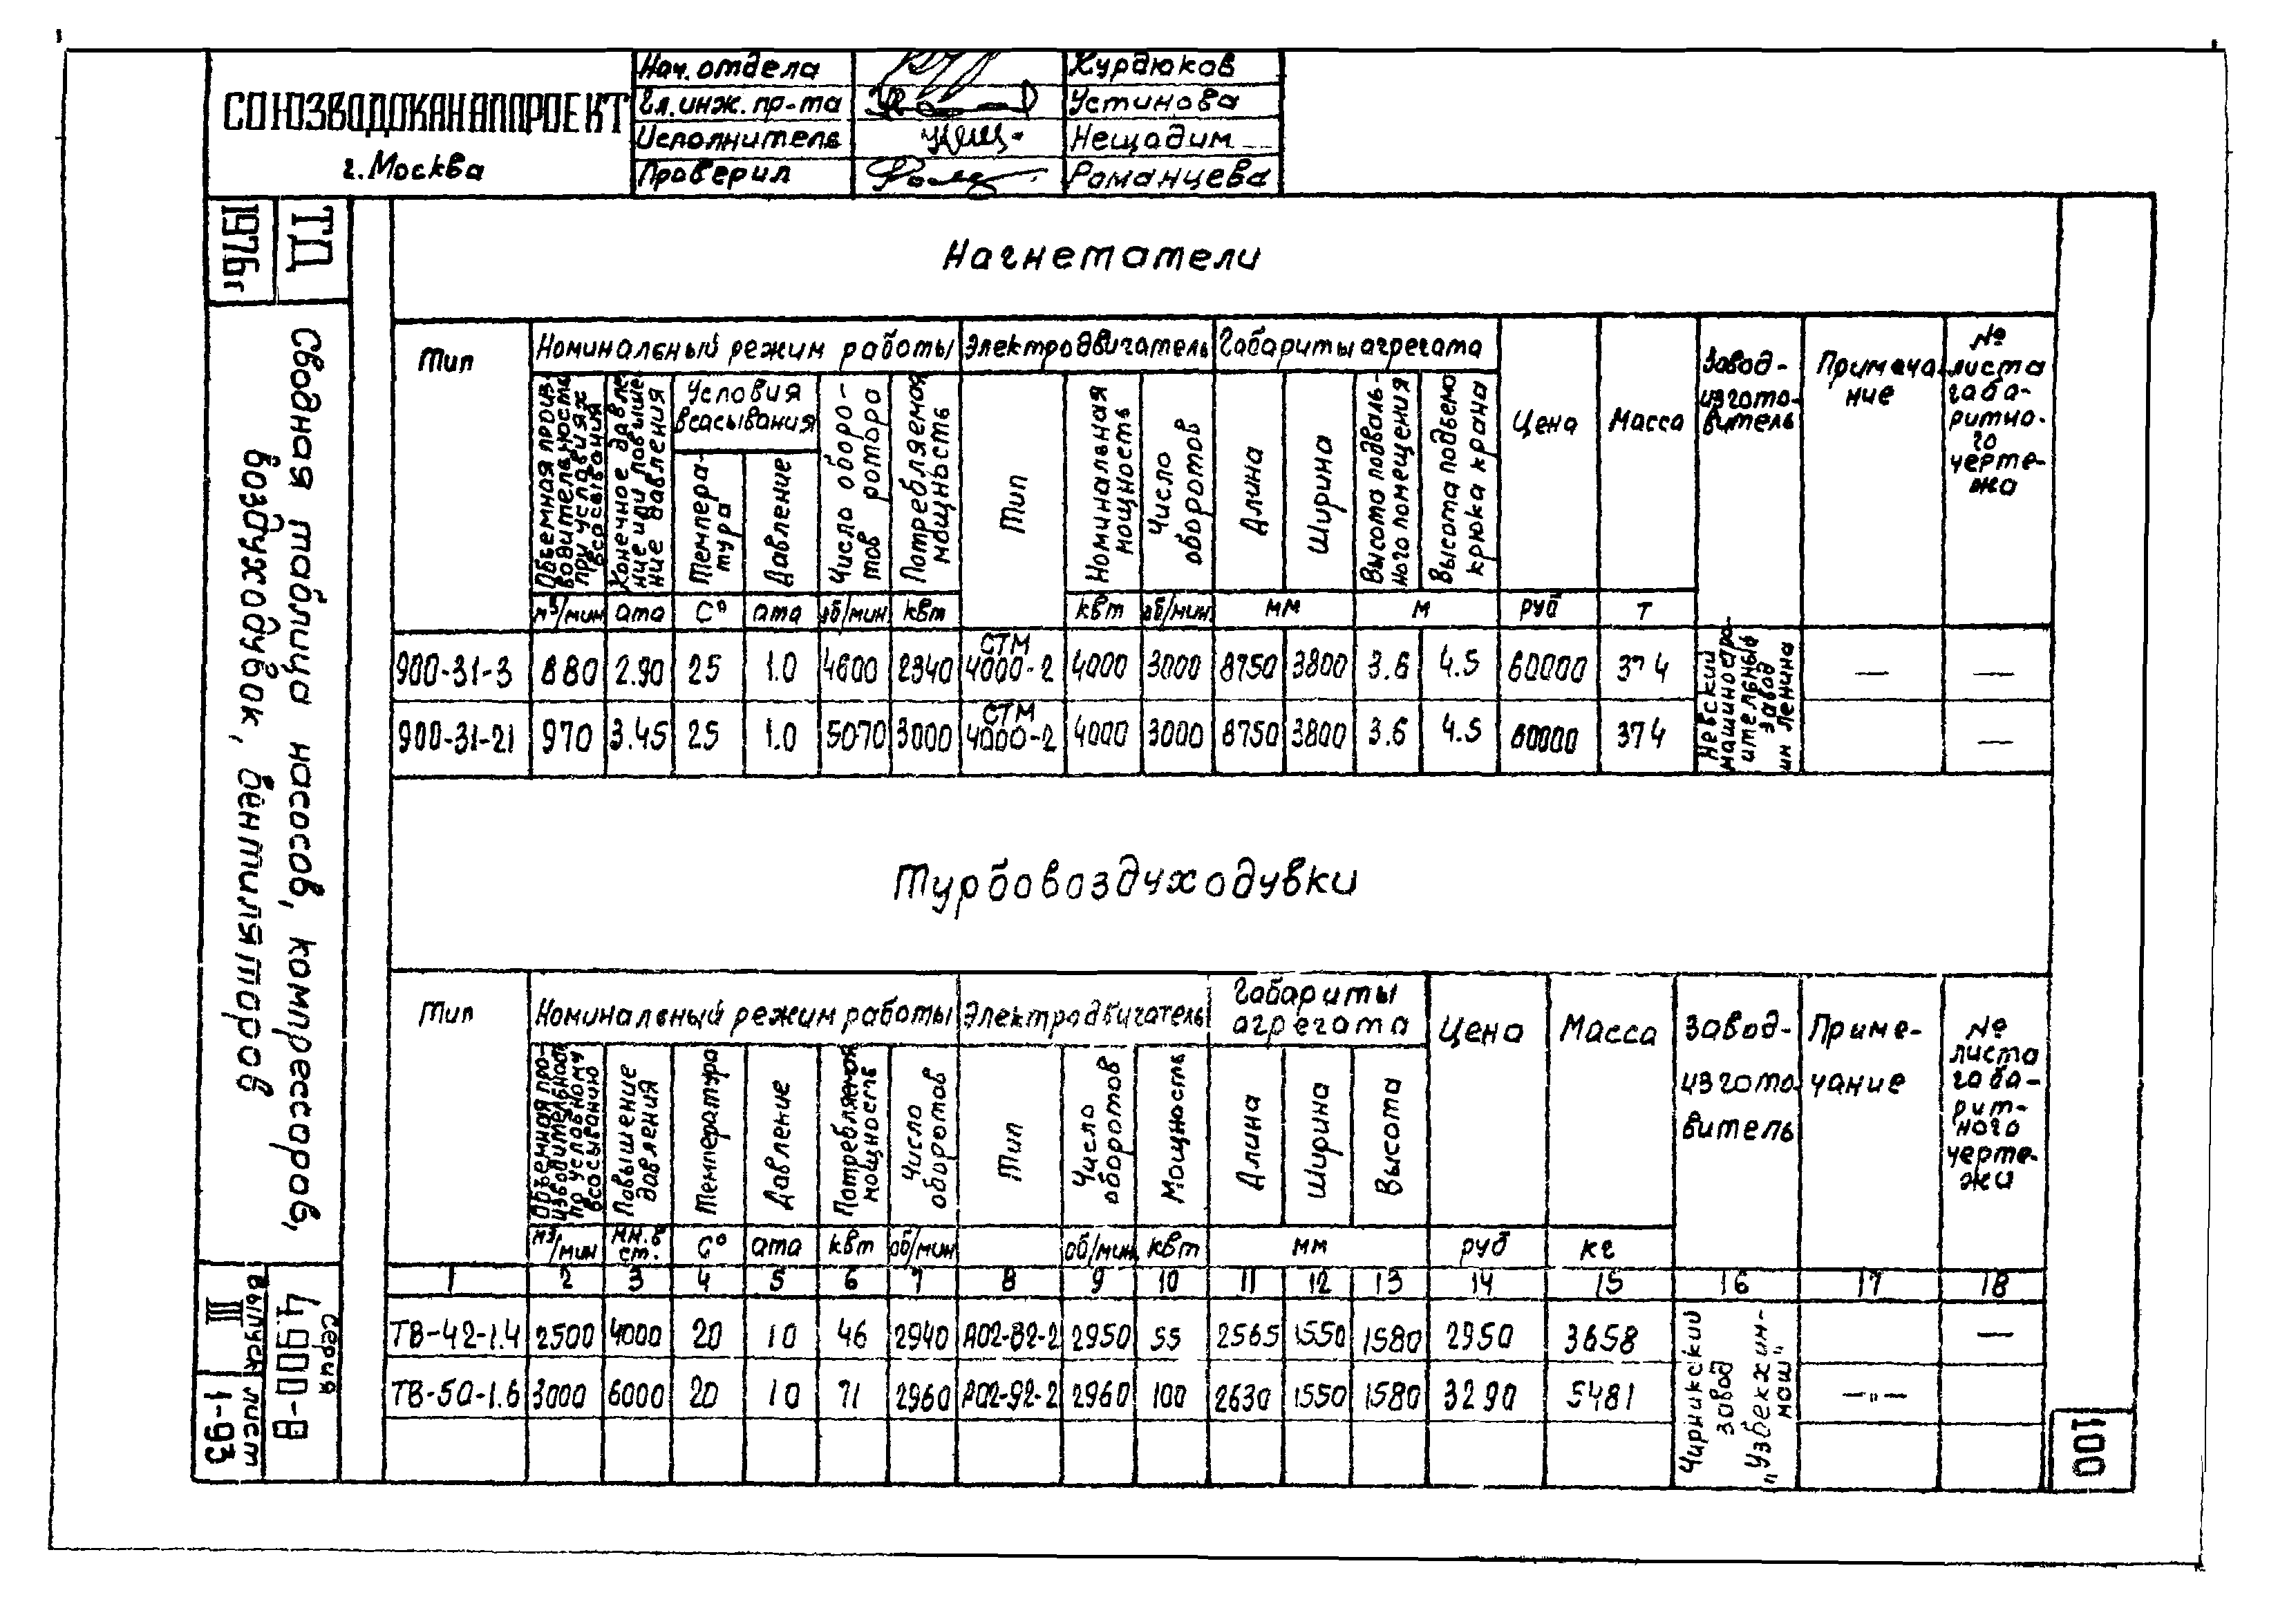 СОЮЗВОДОКАНАЛПРОЕКТ
г. Москва
Нач. отдела Курдюков
Гл. инж. пр-та Устинова
Исполнитель Нещадим
Проверил Романцева
ТД
1976г
Сводная таблица насосов, компрессоров,
воздуходувок, вентиляторов
Серия
4.900-8
Выпуск лист
III 1-93
Нагнетатели
Тип
Номинальный режим работы
Электродвигатель
Габариты агрегата
Цена
Масса
Завод-
изгото-
витель
Примеча-
ние
№
листа
габа-
ритно-
го
черте-
жа
Объемная произ-
водительность
при условиях
всасывания
Конечное давле-
ние или повыше-
ние давления
Условия
всасывания
Темпера-
тура
Давление
Число оборо-
тов ротора
Потребляемая
мощность
Тип
Номинальная
мощность
Число
оборотов
Длина
Ширина
Высота подваль-
ного помещения
Высота подъема
крюка крана
м³/мин ата С° ата об/мин квт квт об/мин мм м руб т
900-31-3 880 2.90 25 1.0 4600 2340 СТМ 4000-2 4000 3000 8750 3800 3.6 4.5 60000 37 4 — —
900-31-21 970 3.45 25 1.0 5070 3000 СТМ 4000-2 4000 3000 8750 3800 3.6 4.5 60000 37 4 —
Невский
машиностро-
ительный
завод
им Ленина
Турбовоздуходувки
Тип
Номинальный режим работы
Электродвигатель
Габариты
агрегата
Цена
Масса
Завод-
изгото-
витель
Приме-
чание
№
листа
габа-
рит-
ного
черте-
жи
Объемная про-
изводительность
по условному
всасыванию
Повышение
давления
Температура
Давление
Потребляемая
мощность
Число
оборотов
Тип
Число
оборотов
Мощность
Длина
Ширина
Высота
м³/мин мм.в ст. С° ата квт об/мин об/мин квт мм руб кг
1 2 3 4 5 6 7 8 9 10 11 12 13 14 15 16 17 18
ТВ-42-1.4 2500 4000 20 1 0 46 2940 А02-82-2 2950 55 2565 1550 1580 2950 3658 —
ТВ-50-1.6 3000 6000 20 1 0 71 2960 А02-92-2 2960 100 2630 1550 1580 3290 5481 —"—
Чирчикский
завод
„Узбекхим-
маш"
100